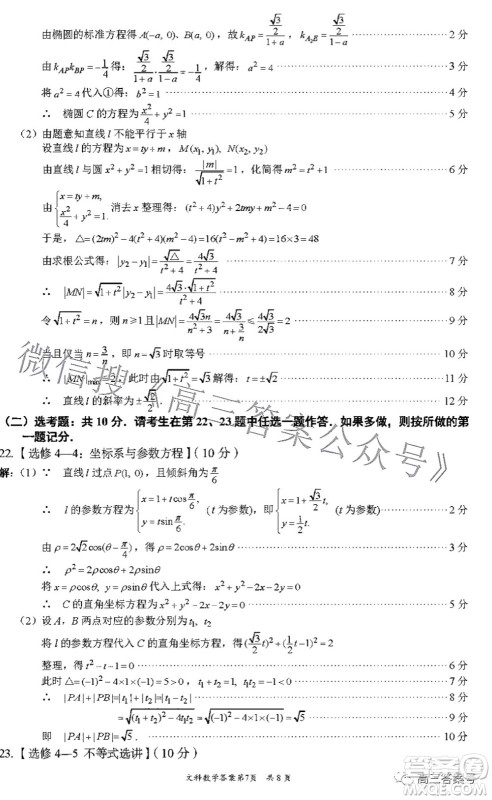 由椭圆的标准方程得 A(-a, 0)、B(a, 0)，故 k_{AP}=\frac{\frac{\sqrt{3}}{2}}{1+a}，k_{A_2E}=\frac{\frac{\sqrt{3}}{2}}{1-a} 2 分
由 k_{AP}k_{BP}=-\frac{1}{4} 得：\frac{\frac{\sqrt{3}}{2}}{1+a}·\frac{\frac{\sqrt{3}}{2}}{1-a}=-\frac{1}{4}，解得：a²=4 3 分
将 a²=4 代入①得：b²=1 4 分
∴ 椭圆 C 的方程为 \frac{x²}{4}+y²=1 5 分
（2）由题意知直线 l 不能平行于 x 轴
设直线 l 的方程为 x=ty+m，M(x₁, y₁)，N(x₂, y₂)
由直线 l 与圆 x²+y²=1 相切得：\frac{|m|}{\sqrt{1+t²}}=1，化简得：m²=t²+1 6 分
由 {x=ty+m, \frac{x²}{4}+y²=1. 消去 x 整理得：(t²+4)y²+2tmy+m²-4=0
于是，△=(2tm)²-4(t²+4)(m²-4)=16(t²-m²+4)=16×3=48
由求根公式得：|y₂-y₁|=\frac{\sqrt{△}}{t²+4}=\frac{4\sqrt{3}}{t²+4} 7 分
∴ |MN|=\sqrt{1+t²}|y₂-y₁|=\frac{4\sqrt{3}·\sqrt{1+t²}}{t²+4} 8 分
令 \sqrt{1+t²}=n，则 n≥1 且 |MN|=\frac{4\sqrt{3}n}{n²+3}=\frac{4\sqrt{3}}{n+\frac{3}{n}}≤\frac{4\sqrt{3}}{2\sqrt{3}}=2 9 分
当且仅当 n=\frac{3}{n}，即 n=\sqrt{3} 时取等号 10 分
∴ |MN|_{max}=2，此时由 \sqrt{1+t²}=\sqrt{3} 解得：t=±\sqrt{2} 11 分
∴ 直线 l 的斜率为±\frac{\sqrt{2}}{2} 12 分
（二）选考题：共 10 分．请考生在第 22、23 题中任选一题作答．如果多做，则按所做的第
一题记分．
22.【选修 4—4：坐标系与参数方程】（10 分）
解：（1）∵ 直线 l 过点 P(1, 0)，且倾斜角为 \frac{π}{6}
∴ l 的参数方程为 {x=1+tcos\frac{π}{6}, y=tsin\frac{π}{6}. （t 为参数），即 {x=1+\frac{\sqrt{3}}{2}t, y=\frac{1}{2}t. （t 为参数） 2 分
由 ρ=2\sqrt{2}cos(θ-\frac{π}{4})，得 ρ=2cosθ+2sinθ 3 分
∴ ρ²=2ρcosθ+2ρsinθ
将 x=ρcosθ，y=ρsinθ 代入上式得：x²+y²-2x-2y=0
∴ C 的直角坐标方程为 x²+y²-2x-2y=0 5 分
（2）设 A，B 两点对应的参数分别为 t₁, t₂
将 l 的参数方程代入 C 的直角坐标方程，得 (\frac{\sqrt{3}}{2}t)²+(\frac{1}{2}t-1)²=2
整理，得 t²-t-1=0 6 分
此时 △=(-1)²-4×1×(-1)=5>0，t₁+t₂=1，t₁t₂=-1 7 分
∴ |PA|+|PB|=|t₁|+|t₂|=|t₁-t₂| 8 分
=\sqrt{(t₁+t₂)²-4t₁t₂}=\sqrt{1²-4×(-1)}=\sqrt{5} 9 分
即 |PA|+|PB|=\sqrt{5} 10 分
23.【选修 4—5 不等式选讲】（10 分）
文科数学答案第7页 共 8 页
微信搜《高三答案公众号》
高三答案号